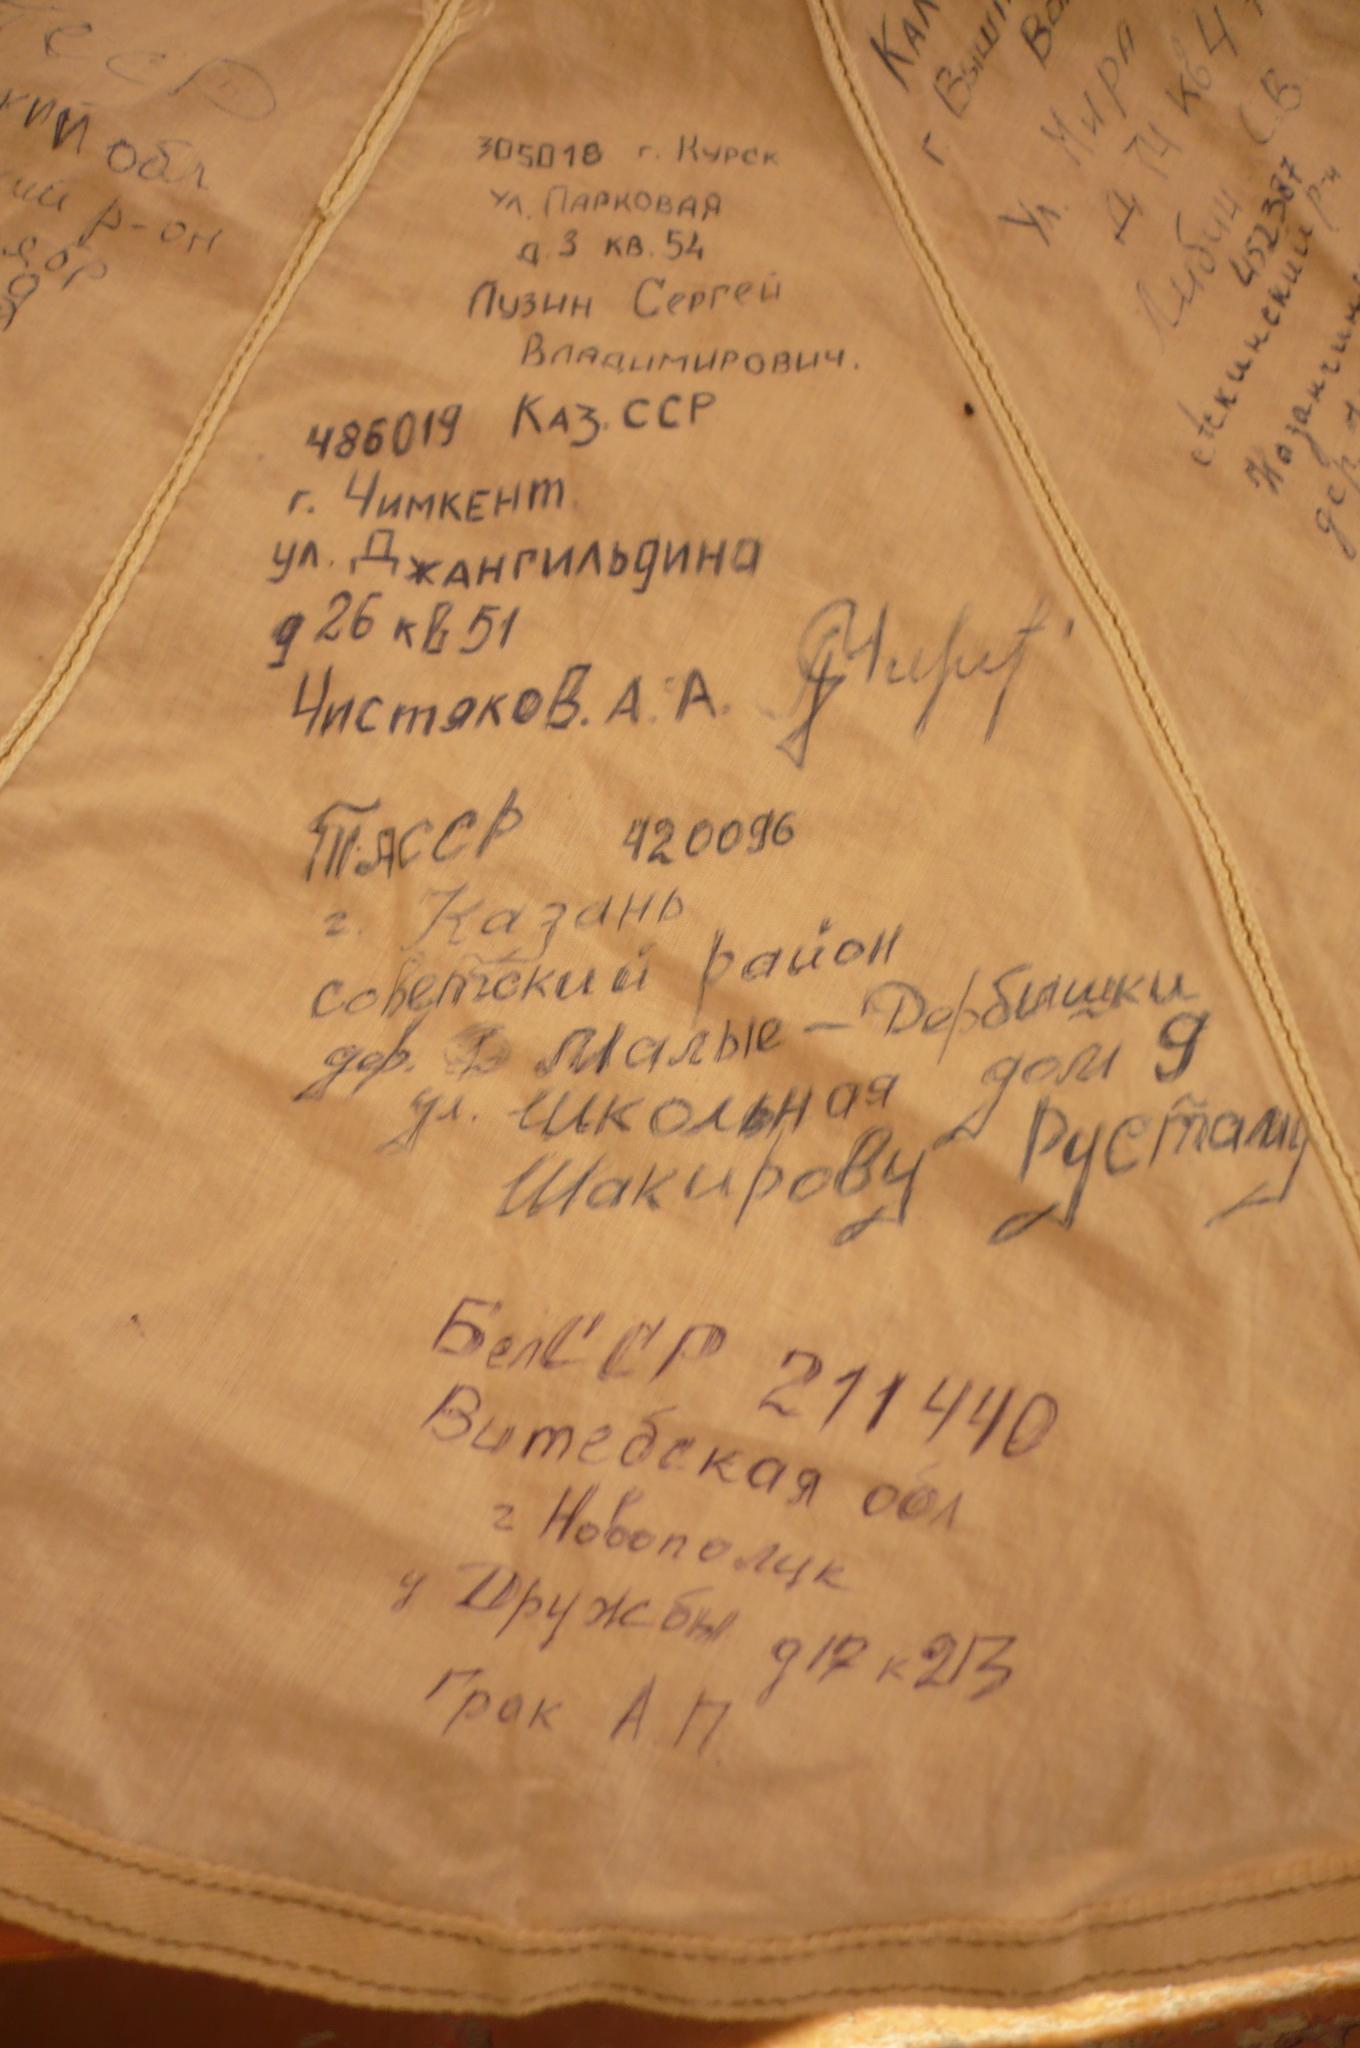 обл
р-он
305018 г. Курск
ул. Парковая
д. 3 кв. 54
Лузин Сергей
Владимирович.
486019 Каз. ССР
г. Чимкент
ул. Джангильдина
д 26 кв 51
Чистяков. А. А.
ТАССР 420096
г. Казань
советский район
дер. Малые - Дербышки
ул. Школьная дом 9
Шакирову Рустаму
БелССР 211440
Витебская обл
г Новополцк
у Дружбы д 17 к 213
Грак А П
ул. Мира
д 74 кв 4
С. В.
452387
р-н